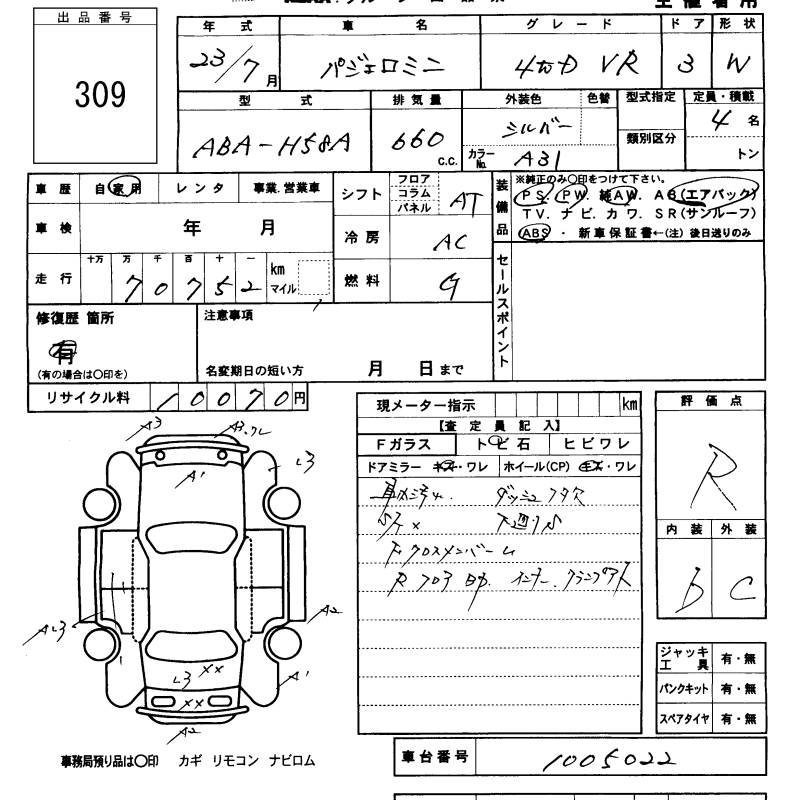 出品番号
309
年式 車名 グレード ドア 形状
23/7月 パジェロミニ 4WD VR 3 W
型式 排気量 外装色 色替 型式指定 定員・積載
ABA-H58A 660 c.c. シルバー 類別区分 4名
カラーNo. A31 トン
車歴 自家用 レンタ 事業.営業車
シフト フロア コラム パネル AT
装備品
※純正のみ○印をつけて下さい。
PS. PW. 純AW. AB(エアバック)
TV. ナビ. カワ. SR(サンルーフ)
ABS ・ 新車保証書←(注) 後日送りのみ
車検 年 月
冷房 AC
走行 十万 万 千 百 十 一
70752 km マイル
燃料 G
セールスポイント
修復歴 箇所
有
(有の場合は○印を)
注意事項
名変期日の短い方 月 日まで
リサイクル料 10070円
現メーター指示 km
【査定員記入】
Fガラス トビ石 ヒビワレ
ドアミラー キズ・ワレ ホイール(CP) キズ・ワレ
ダッシュフタ欠
下廻りS
Fクロスメンバーム
評価点
R
内装 外装
b C
A3
A1
L3
A2
AL3
L3 XX
XX
A1
A2
ジャッキ工具 有・無
パンクキット 有・無
スペアタイヤ 有・無
車台番号 1005022
事務局預り品は○印 カギ リモコン ナビロム